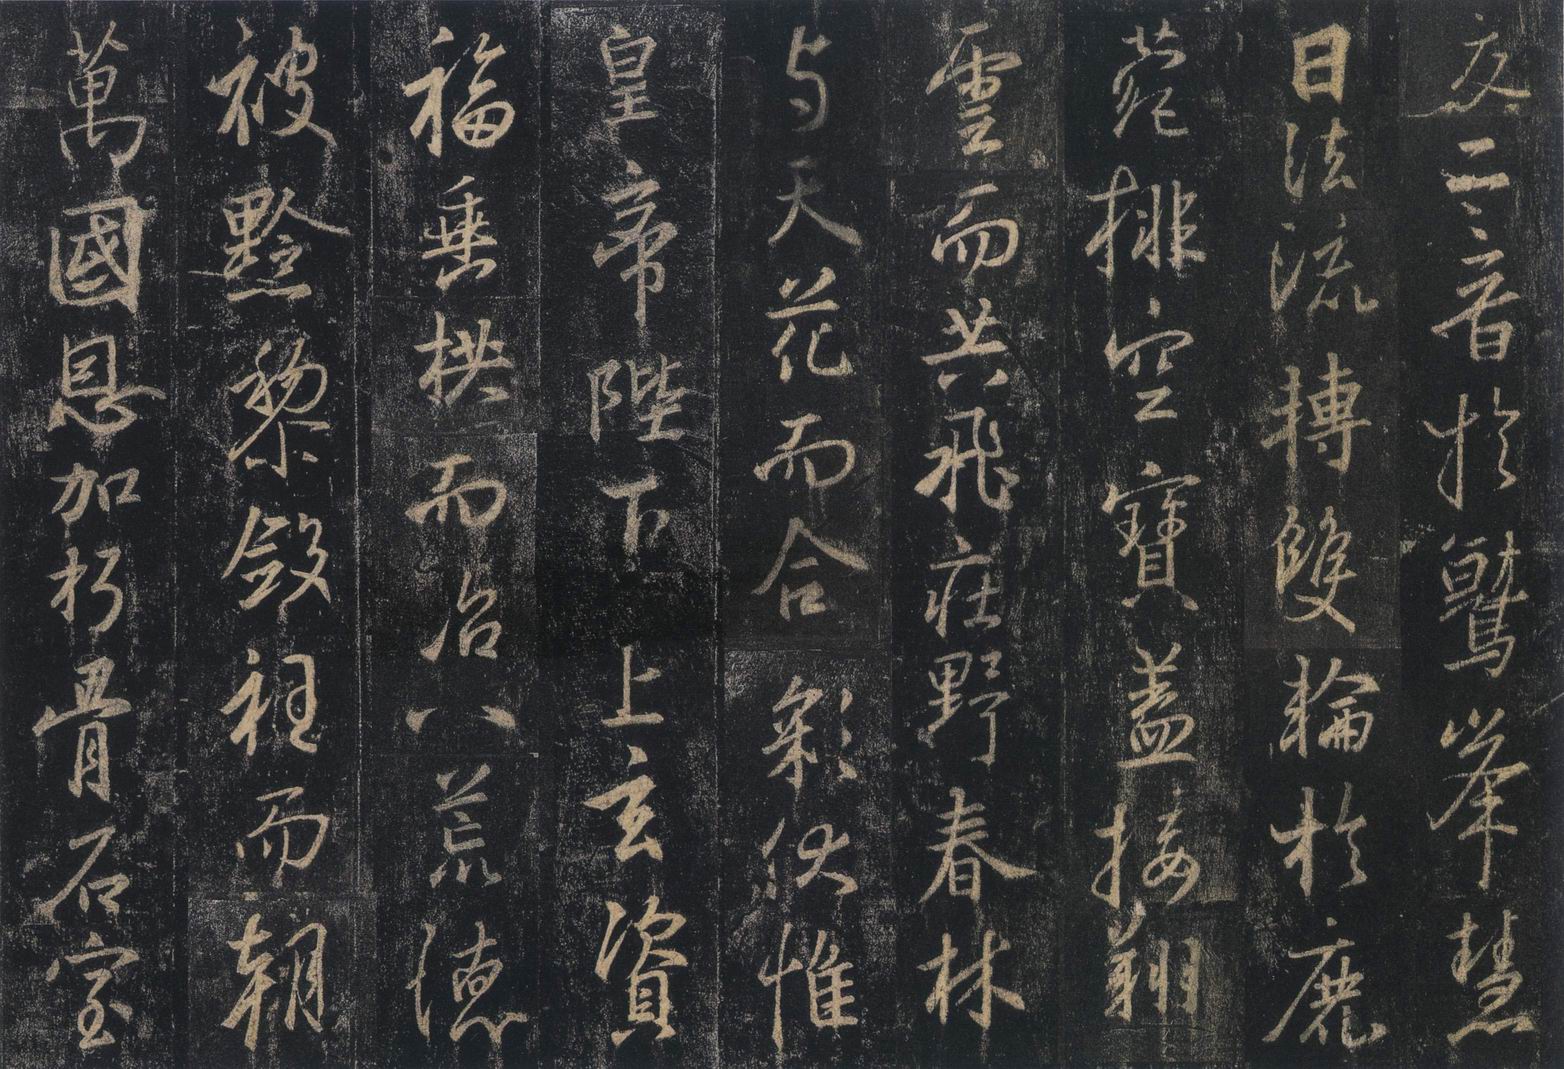 夜二音於鷲峯慧
日法流轉雙輪於鹿
菀排空寶蓋接翔
雲而共飛莊野春林
与天花而合
彩伏惟
皇帝陛下上玄資
福垂拱而治八荒德
被黔黎斂衽而朝
萬國恩加朽骨石室